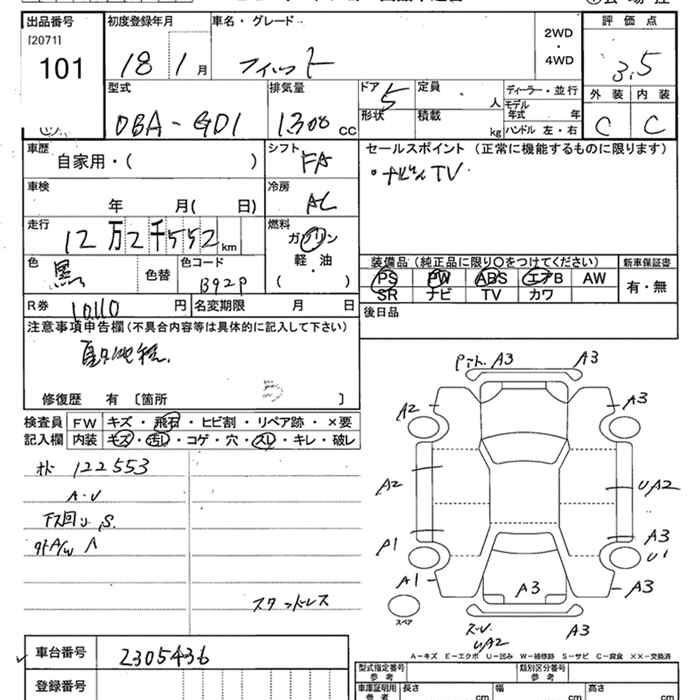 出品番号 初度登録年月 車名・グレード 2WD・4WD 評価点
[2071]
101 18 1月 フィット 3.5
型式 排気量 ドア 5 定員 人 ディーラー・並行 外装 内装
DBA-GD1 1300cc 形状 積載 kg モデル年式 年 C C
ハンドル 左・右
車歴 自家用・( ) シフト FA セールスポイント (正常に機能するものに限ります)
車検 年 月( 日) 冷房 AC ・ナビ TV
走行 12万2千552km 燃料 ガソリン
軽・油
( )
色 黒 色替 色コード B92P 装備品 (純正品に限り○をつけてください) 新車保証書
PS PW ABS エアB AW 有・無
SR ナビ TV カワ
R券 10,110円 名変期限 月 日 後日品
注意事項申告欄 (不具合内容等は具体的に記入して下さい)
修復歴 有 〔箇所 〕
検査員 FW キズ・飛石・ヒビ割・リペア跡・×要
記入欄 内装 キズ・汚し・コゲ・穴・スレ・キレ・破レ
122553
A・U
S.
外A/W
スタッドレス
A3 A3
A2 A3
A2 UA2
A1 A3
U1
A1 A3 A3
スペア
UA2 A3
A-キズ E-エクボ U-凹み W-補修跡 S-サビ C-腐食 XX-交換済
車台番号 2305436
登録番号
型式指定番号 参考 類別区分番号 参考
車庫証明用 参考 長さ cm 幅 cm 高さ cm